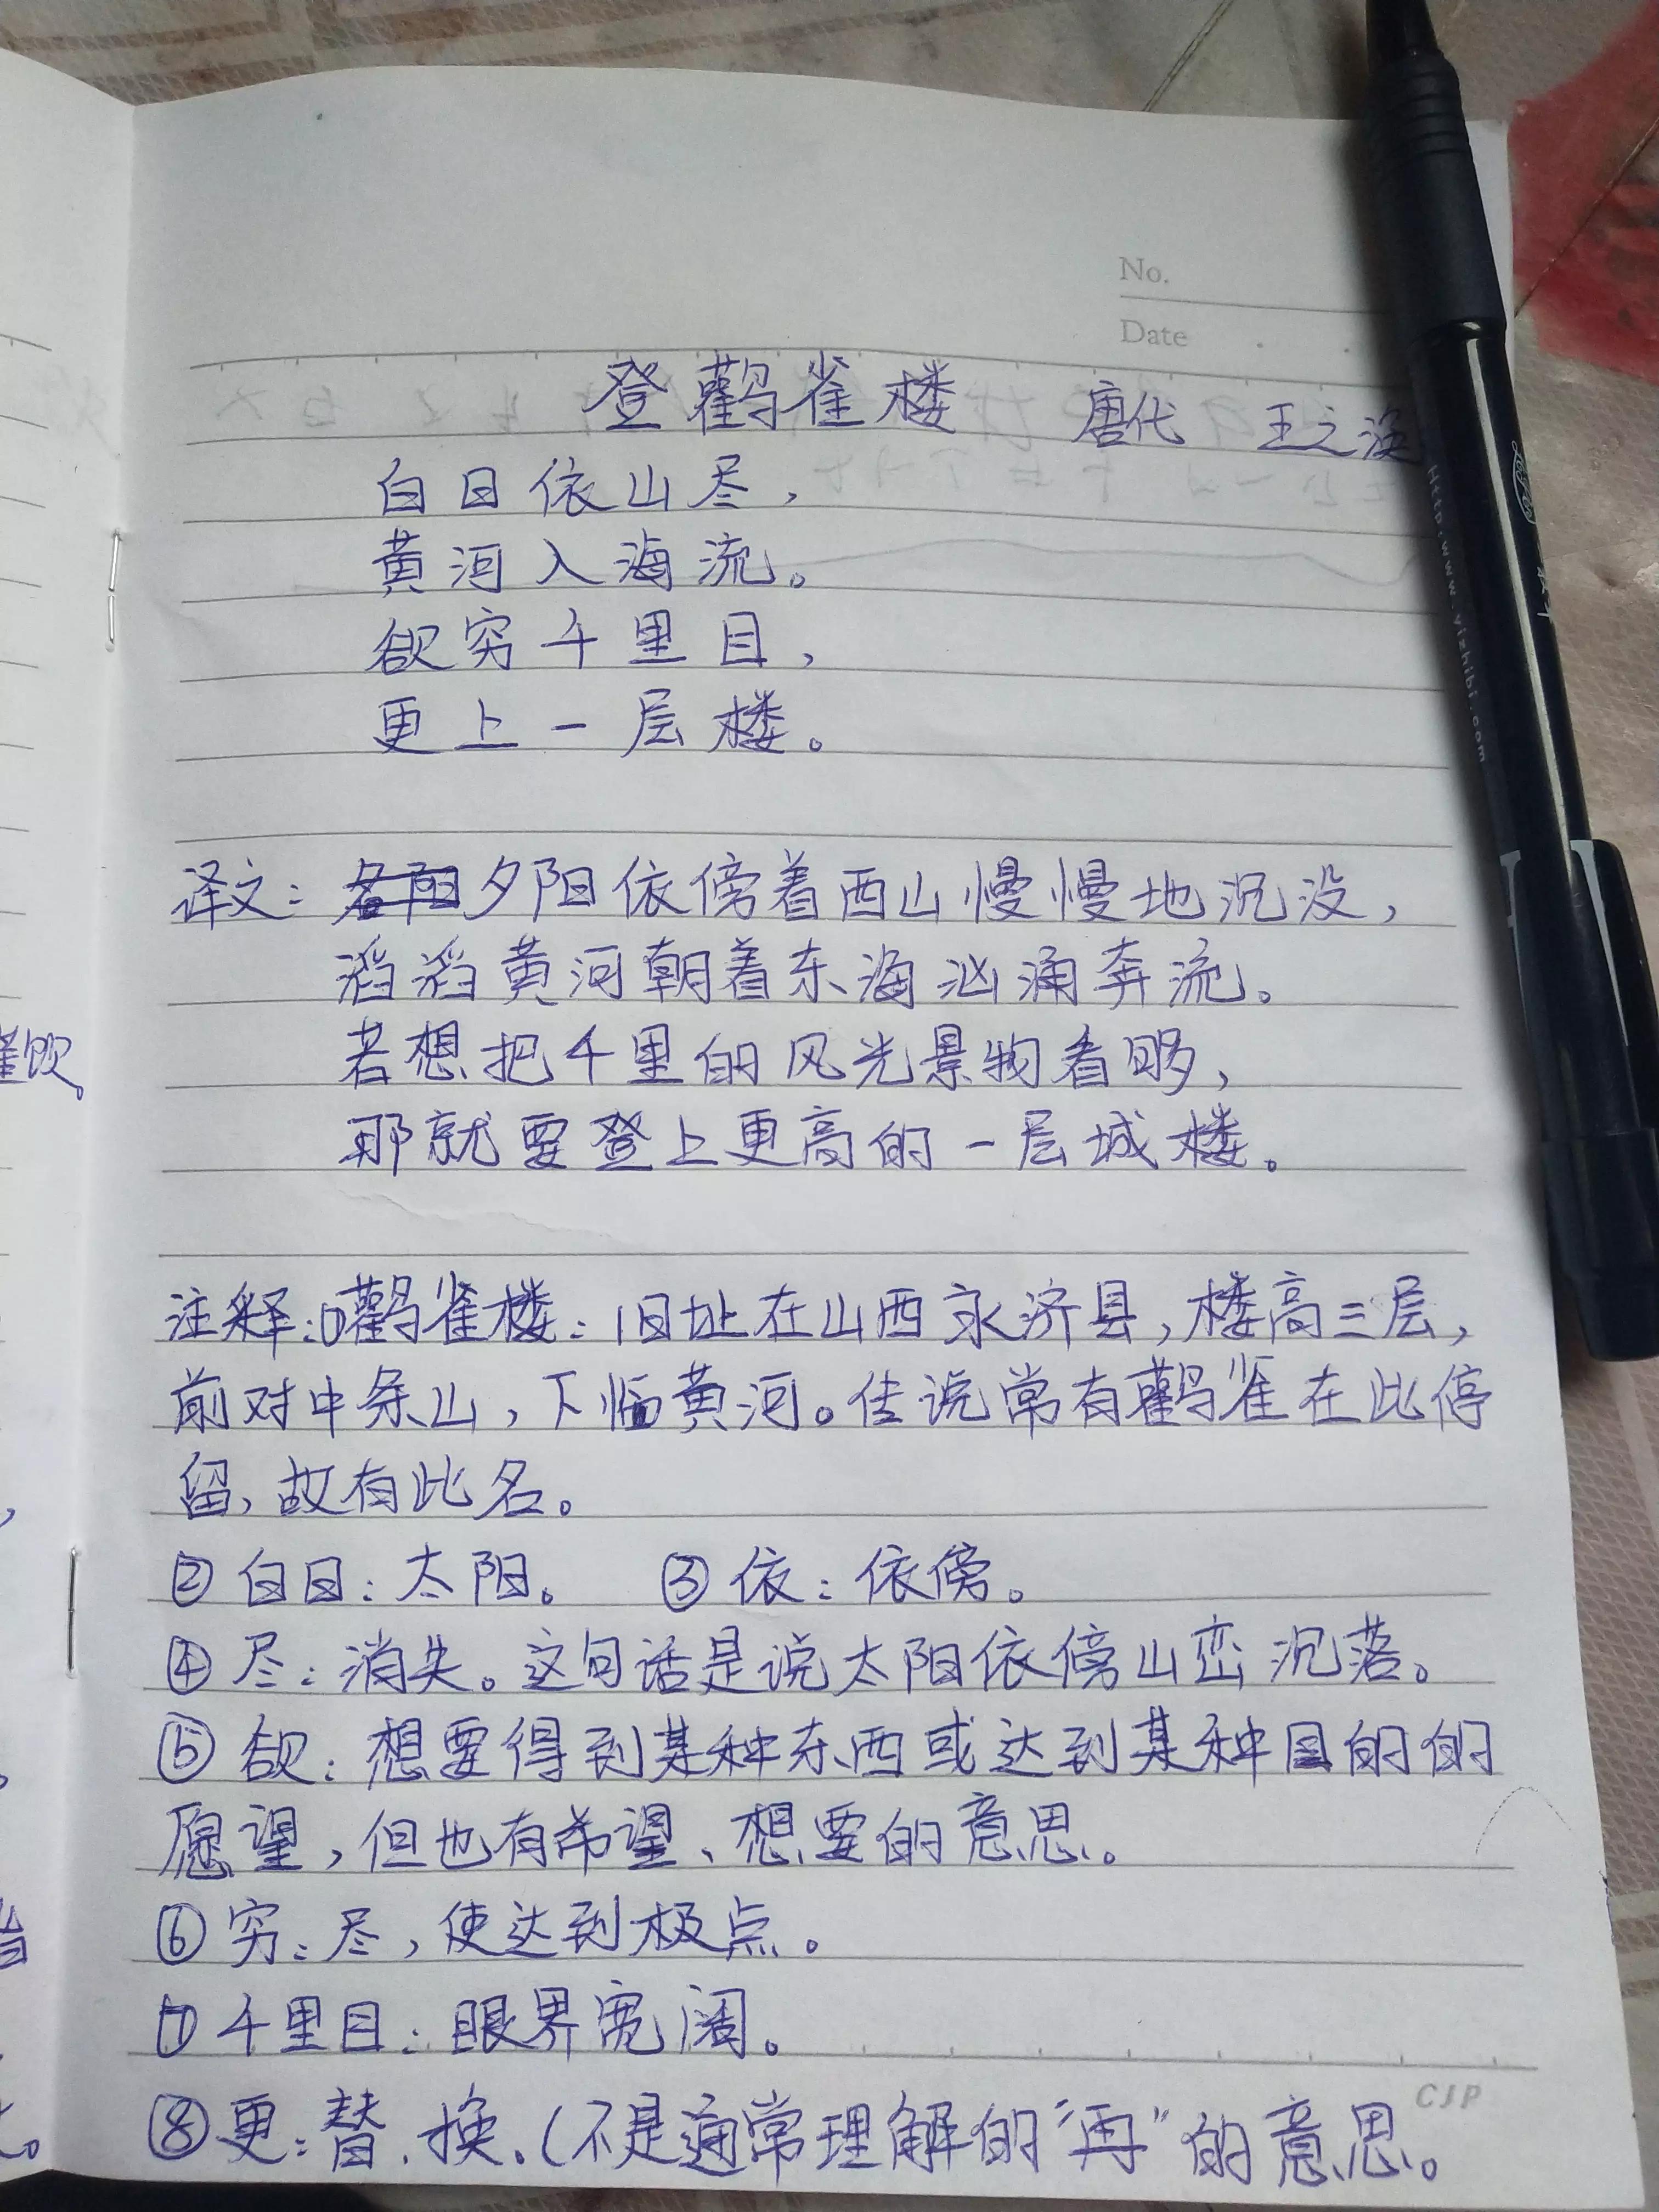 No.
Date
登鹳雀楼 唐代 王之涣
白日依山尽，
黄河入海流。
欲穷千里目，
更上一层楼。
译文：夕阳依傍着西山慢慢地沉没，
滔滔黄河朝着东海汹涌奔流。
若想把千里的风光景物看够，
那就要登上更高的一层城楼。
注释：①鹳雀楼：旧址在山西永济县，楼高三层，
前对中条山，下临黄河。传说常有鹳雀在此停
留，故有此名。
②白日：太阳。 ③依：依傍。
④尽：消失。这句话是说太阳依傍山峦沉落。
⑤欲：想要得到某种东西或达到某种目的的
愿望，但也有希望、想要的意思。
⑥穷：尽，使达到极点。
⑦千里目：眼界宽阔。
⑧更：替、换。（不是通常理解的“再”的意思。
CJP
Http:www.yizhibi.com